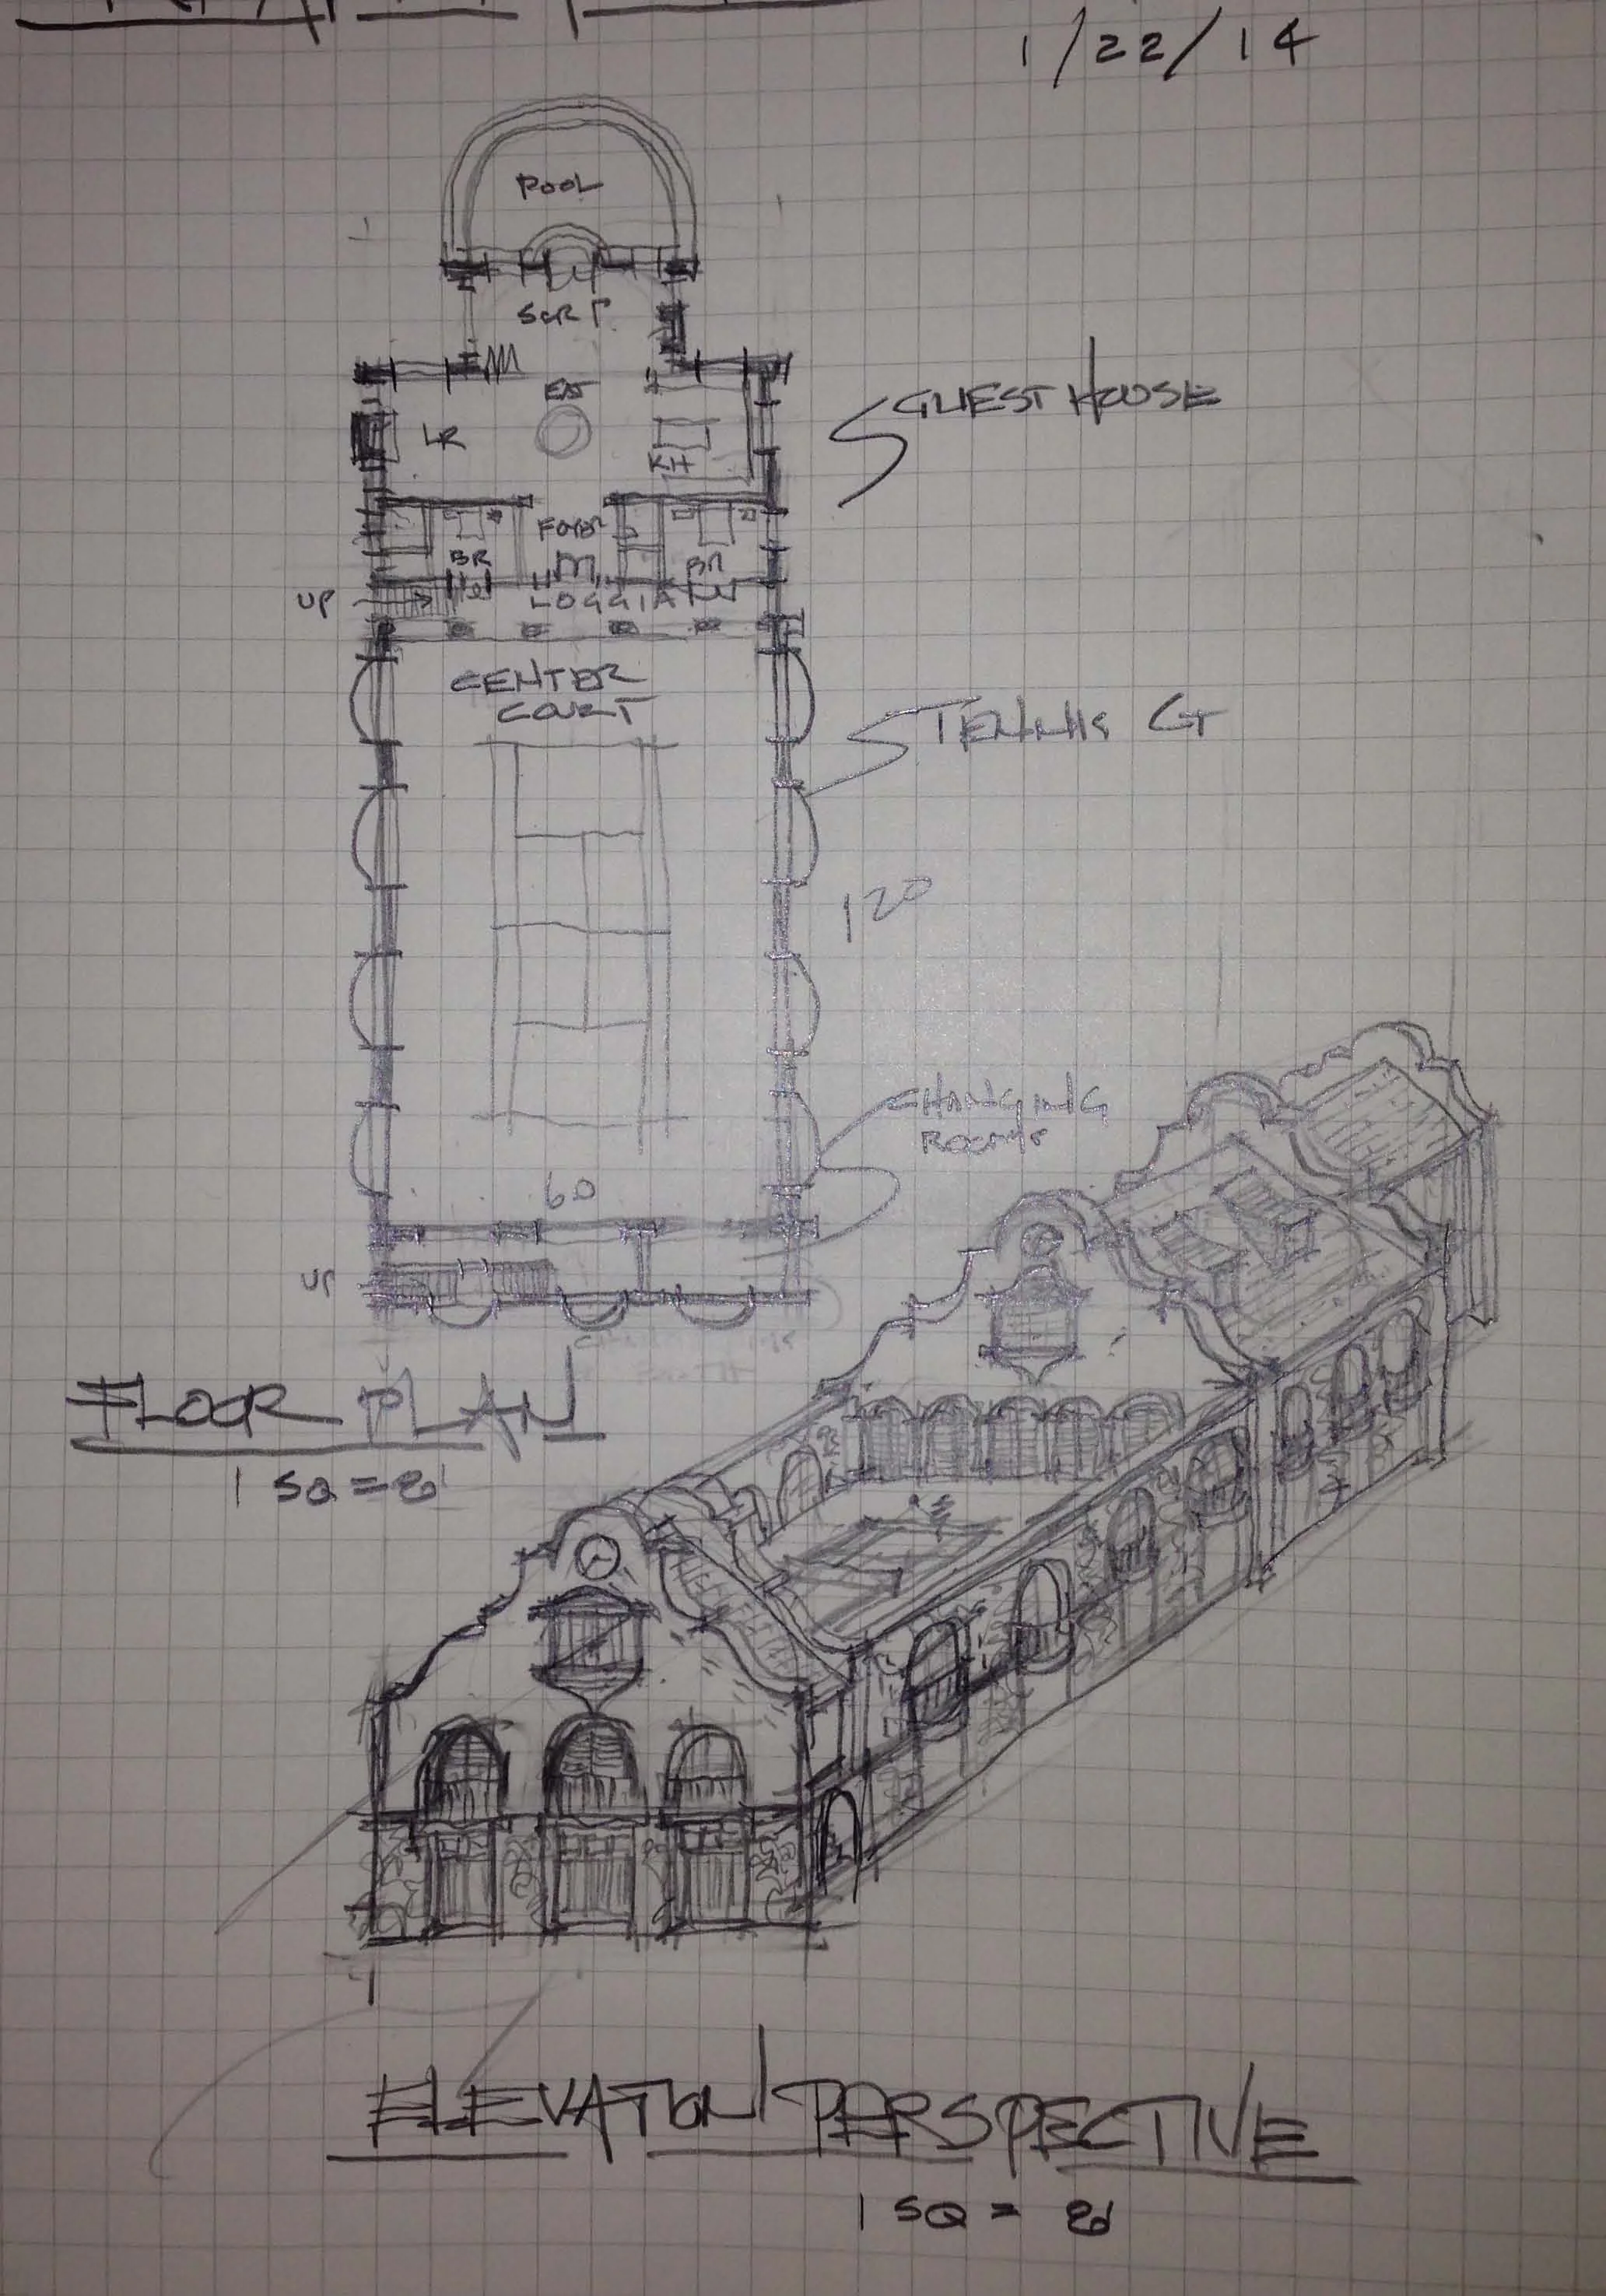 1/22/14
POOL
SCR P
EAT
LR
KH
GUEST HOUSE
FOYER
BR
BR
UP
LOGGIA
CENTER
COURT
TENNIS CT
120
CHANGING
ROOMS
60
UP
FLOOR PLAN
1 SQ = 8'
ELEVATION/PERSPECTIVE
1 SQ = 8'